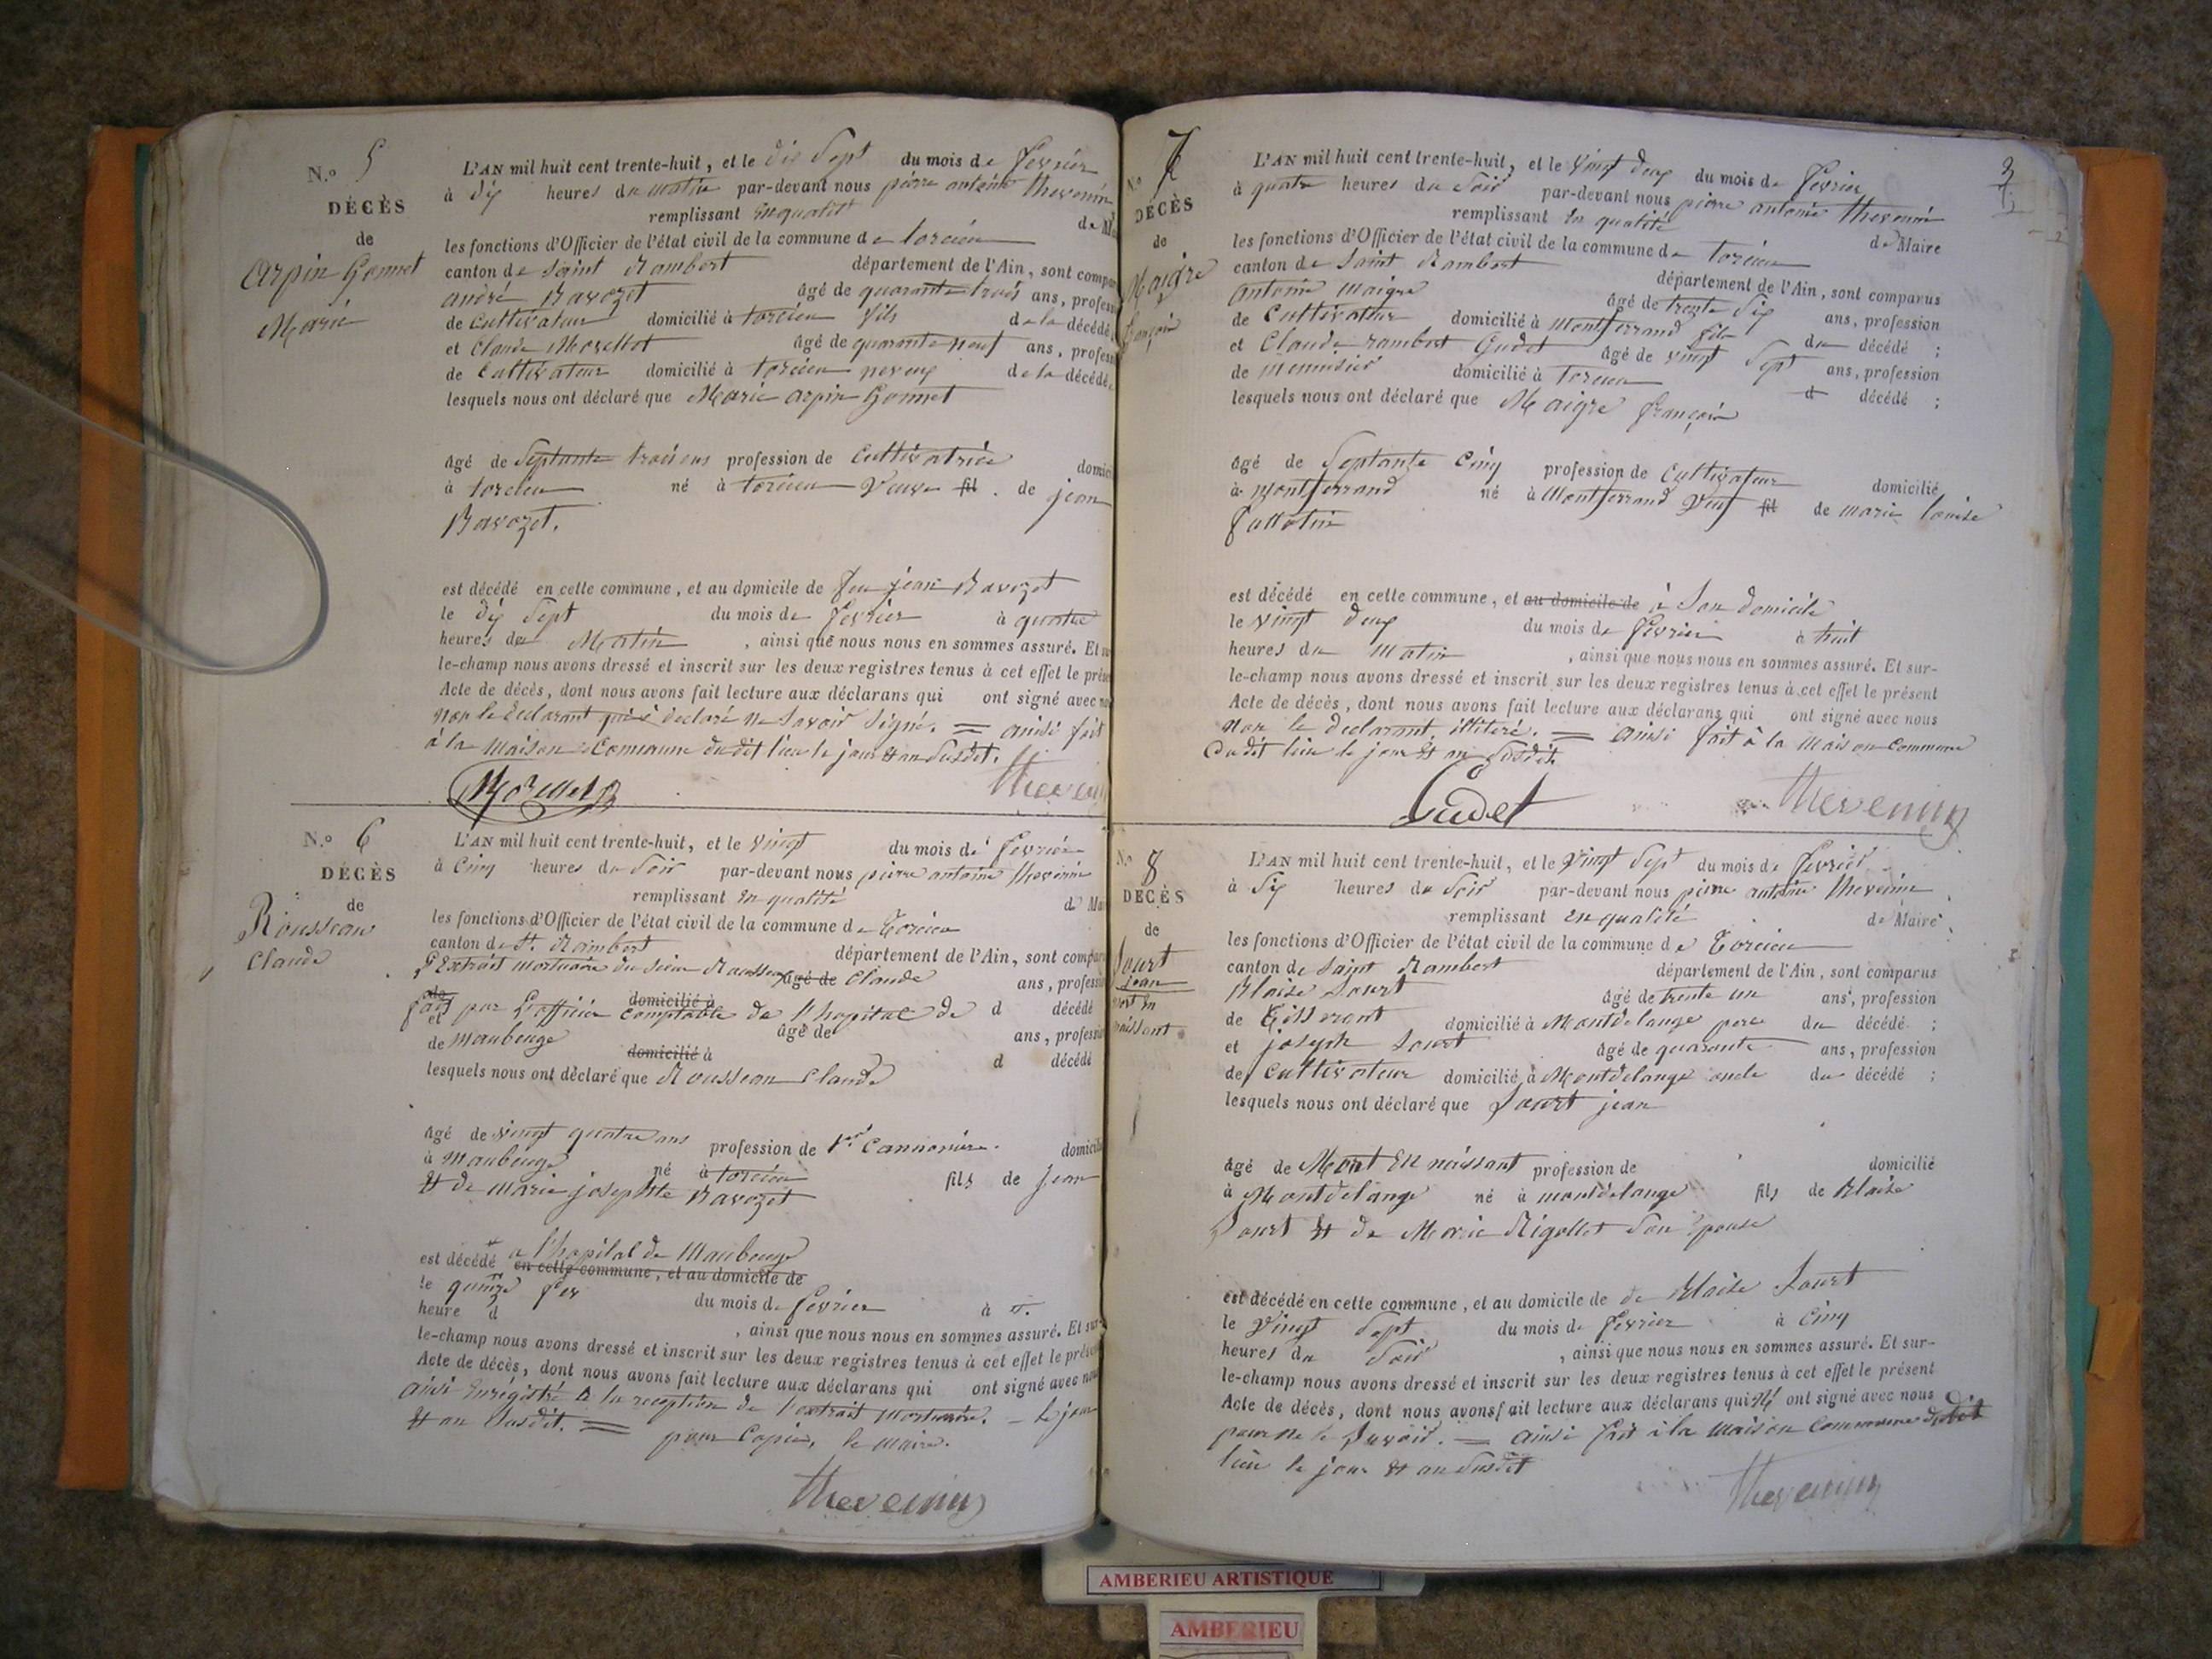 N.º 5
DÉCÈS
de
Arpin Gonnet
Marie
L'AN mil huit cent trente-huit, et le dix Sept du mois de fevrier
à dix heures du matin par-devant nous pierre antoine thevenin
remplissant en qualité de
les fonctions d'Officier de l'état civil de la commune de torcieu
canton de Saint Rambert département de l'Ain, sont
andré Ravozet âgé de quarante trois ans,
de Cultivateur domicilié à torcieu fils de la décédé
et Claude Morellet âgé de quarante neuf ans,
de Cultivateur domicilié à torcieu neveux de la décédé
lesquels nous ont déclaré que Marie arpin Gonnet
âgé de Septante trois ans profession de Cultivatrice
à torcieu né à torcieu Veuve fil. de jean
Ravozet.
est décédé en cette commune, et au domicile de feu jean Ravozet
le dix Sept du mois de fevrier à quatre
heures du Matin , ainsi que nous nous en sommes assuré. Et
le-champ nous avons dressé et inscrit sur les deux registres tenus à cet effet le
Acte de décès, dont nous avons fait lecture aux déclarans qui ont signé avec
non le declarant qui a declaré ne Savoir Signé. = ainsi fait
à la Maison Commune du dit lieu le jour et an Susdit.
Morellet
thevenin
N.º 6
DÉCÈS
de
Rousseau
Claude
L'AN mil huit cent trente-huit, et le vingt du mois de fevrier
à Cinq heures du Soir par-devant nous pierre antoine thevenin
remplissant en qualité de
les fonctions d'Officier de l'état civil de la commune de Torcieu
canton de St. Rambert département de l'Ain, sont
l'Extrait mortuaire du sieur Rousseau âgé de Claude ans,
fait par L'officier domicilié à comptable de l'hopital de d décédé
et âgé de ans,
de Maubeuge domicilié à d décédé
lesquels nous ont déclaré que Rousseau Claude
âgé de vingt quatre ans profession de 1er Cannonière.
à Maubeuge né à torcieu fils de Jean
et de Marie josephte Ravozet
est décédé a l'hopital de Maubeuge en cette commune, et au domicile de
le du mois de fevrier à
heure d , ainsi que nous nous en sommes assuré. Et sur-
le-champ nous avons dressé et inscrit sur les deux registres tenus à cet effet le
Acte de décès, dont nous avons fait lecture aux déclarans qui ont signé avec
ainsi enregistré a la reception de l'extrait mortuaire. - le jour
et an Susdit. = pour Copie, le maire.
thevenin
3
N.º 7
DÉCÈS
de
Maigre
françois
L'AN mil huit cent trente-huit, et le vingt deux du mois de fevrier
à quatre heures du Soir par-devant nous pierre antoine thevenin
remplissant en qualité de Maire
les fonctions d'Officier de l'état civil de la commune de Torcieu
canton de Saint Rambert département de l'Ain, sont comparus
antoine Maigre âgé de trente Six ans, profession
de Cultivateur domicilié à Montferrand fils du décédé ;
et Claude rambert Cudet âgé de vingt Sept ans, profession
de Menuisier domicilié à Torcieu d décédé ;
lesquels nous ont déclaré que Maigre françois
âgé de Septante Cinq profession de Cultivateur domicilié
à Montferrand né à Montferrand Veuf fil de marie louise
fallatin
est décédé en cette commune, et au domicile de à Son domicile
le vingt deux du mois de fevrier à huit
heures du Matin , ainsi que nous nous en sommes assuré. Et sur-
le-champ nous avons dressé et inscrit sur les deux registres tenus à cet effet le présent
Acte de décès, dont nous avons fait lecture aux déclarans qui ont signé avec nous
non le declarant illiteré. = ainsi fait à la Maison Commune
Du dit lieu le jour et an Susdit.
Cudet
thevenin
N.º 8
DÉCÈS
de
Sourt
jean
mort en
naissant
L'AN mil huit cent trente-huit, et le Vingt Sept du mois de fevrier
à Six heures du Soir par-devant nous pierre antoine thevenin
remplissant en qualité de Maire
les fonctions d'Officier de l'état civil de la commune de Torcieu
canton de Saint Rambert département de l'Ain, sont comparus
Blaise Sourt âgé de trente un ans, profession
de Tisserant domicilié à Montdelange pere du décédé ;
et joseph Sourt âgé de quarante ans, profession
de Cultivateur domicilié à Montdelange oncle du décédé ;
lesquels nous ont déclaré que Sourt jean
âgé de Mort En naissant profession de domicilié
à Montdelange né à montdelange fils de Blaise
Sourt et de Marie Rigollet Son Epouse
est décédé en cette commune, et au domicile de de Blaise Sourt
le Vingt Sept du mois de fevrier à Cinq
heures du Soir , ainsi que nous nous en sommes assuré. Et sur-
le-champ nous avons dressé et inscrit sur les deux registres tenus à cet effet le présent
Acte de décès, dont nous avons fait lecture aux déclarans qui N'ont signé avec nous
pour ne le Savoir. = ainsi fait à la Maison Commune dudit
lieu le jour et an Susdit
thevenin
AMBERIEU ARTISTIQUE
AMBERIEU